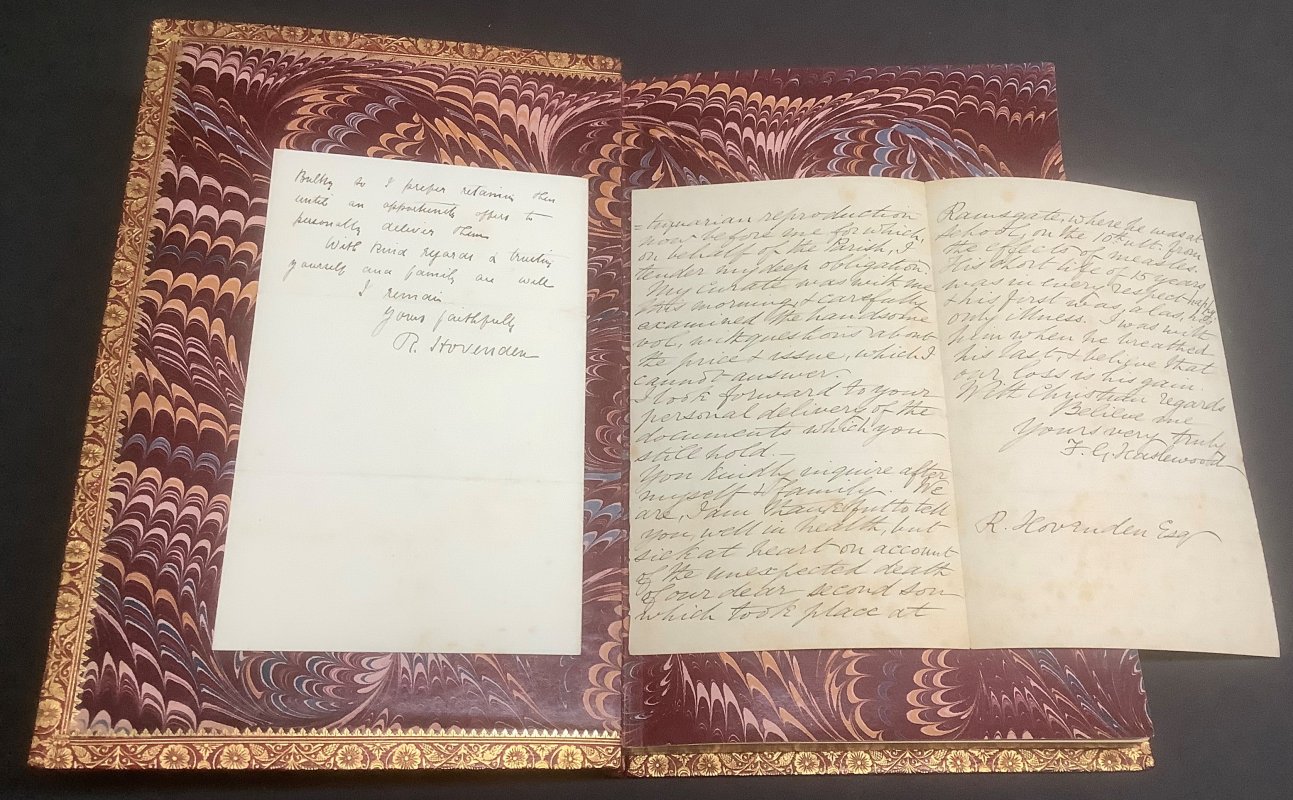 Bulky so I prefer retaining them
until an opportunity offers to
personally deliver them
With kind regards & trusting
yourself and family are well
I remain
Yours faithfully
R. Hovenden
=tiquarian reproduction
now before me for which,
on behalf of the Parish, I
tender my deep obligation
My Curate was with me
this morning & carefully
examined the handsome
vol, with questions about
the price & issue, which I
cannot answer.
I look forward to your
personal delivery of the
documents which you
still hold.
You kindly inquire after
myself & family. We
are, I am thankful to tell
you, well in health, but
sick at heart on account
of the unexpected death
of our dear second son
which took place at
Ramsgate, where he was at
school, on the 10th ult. from
the effects of measles.
His short life of 15 years
was in every respect happy
& his first was, alas, his
only illness. I was with
him when he breathed
his last, & believe that
our loss is his gain.
With Christian regards
Believe me
Yours very truly
F. G. Haslewood
R. Hovenden Esq